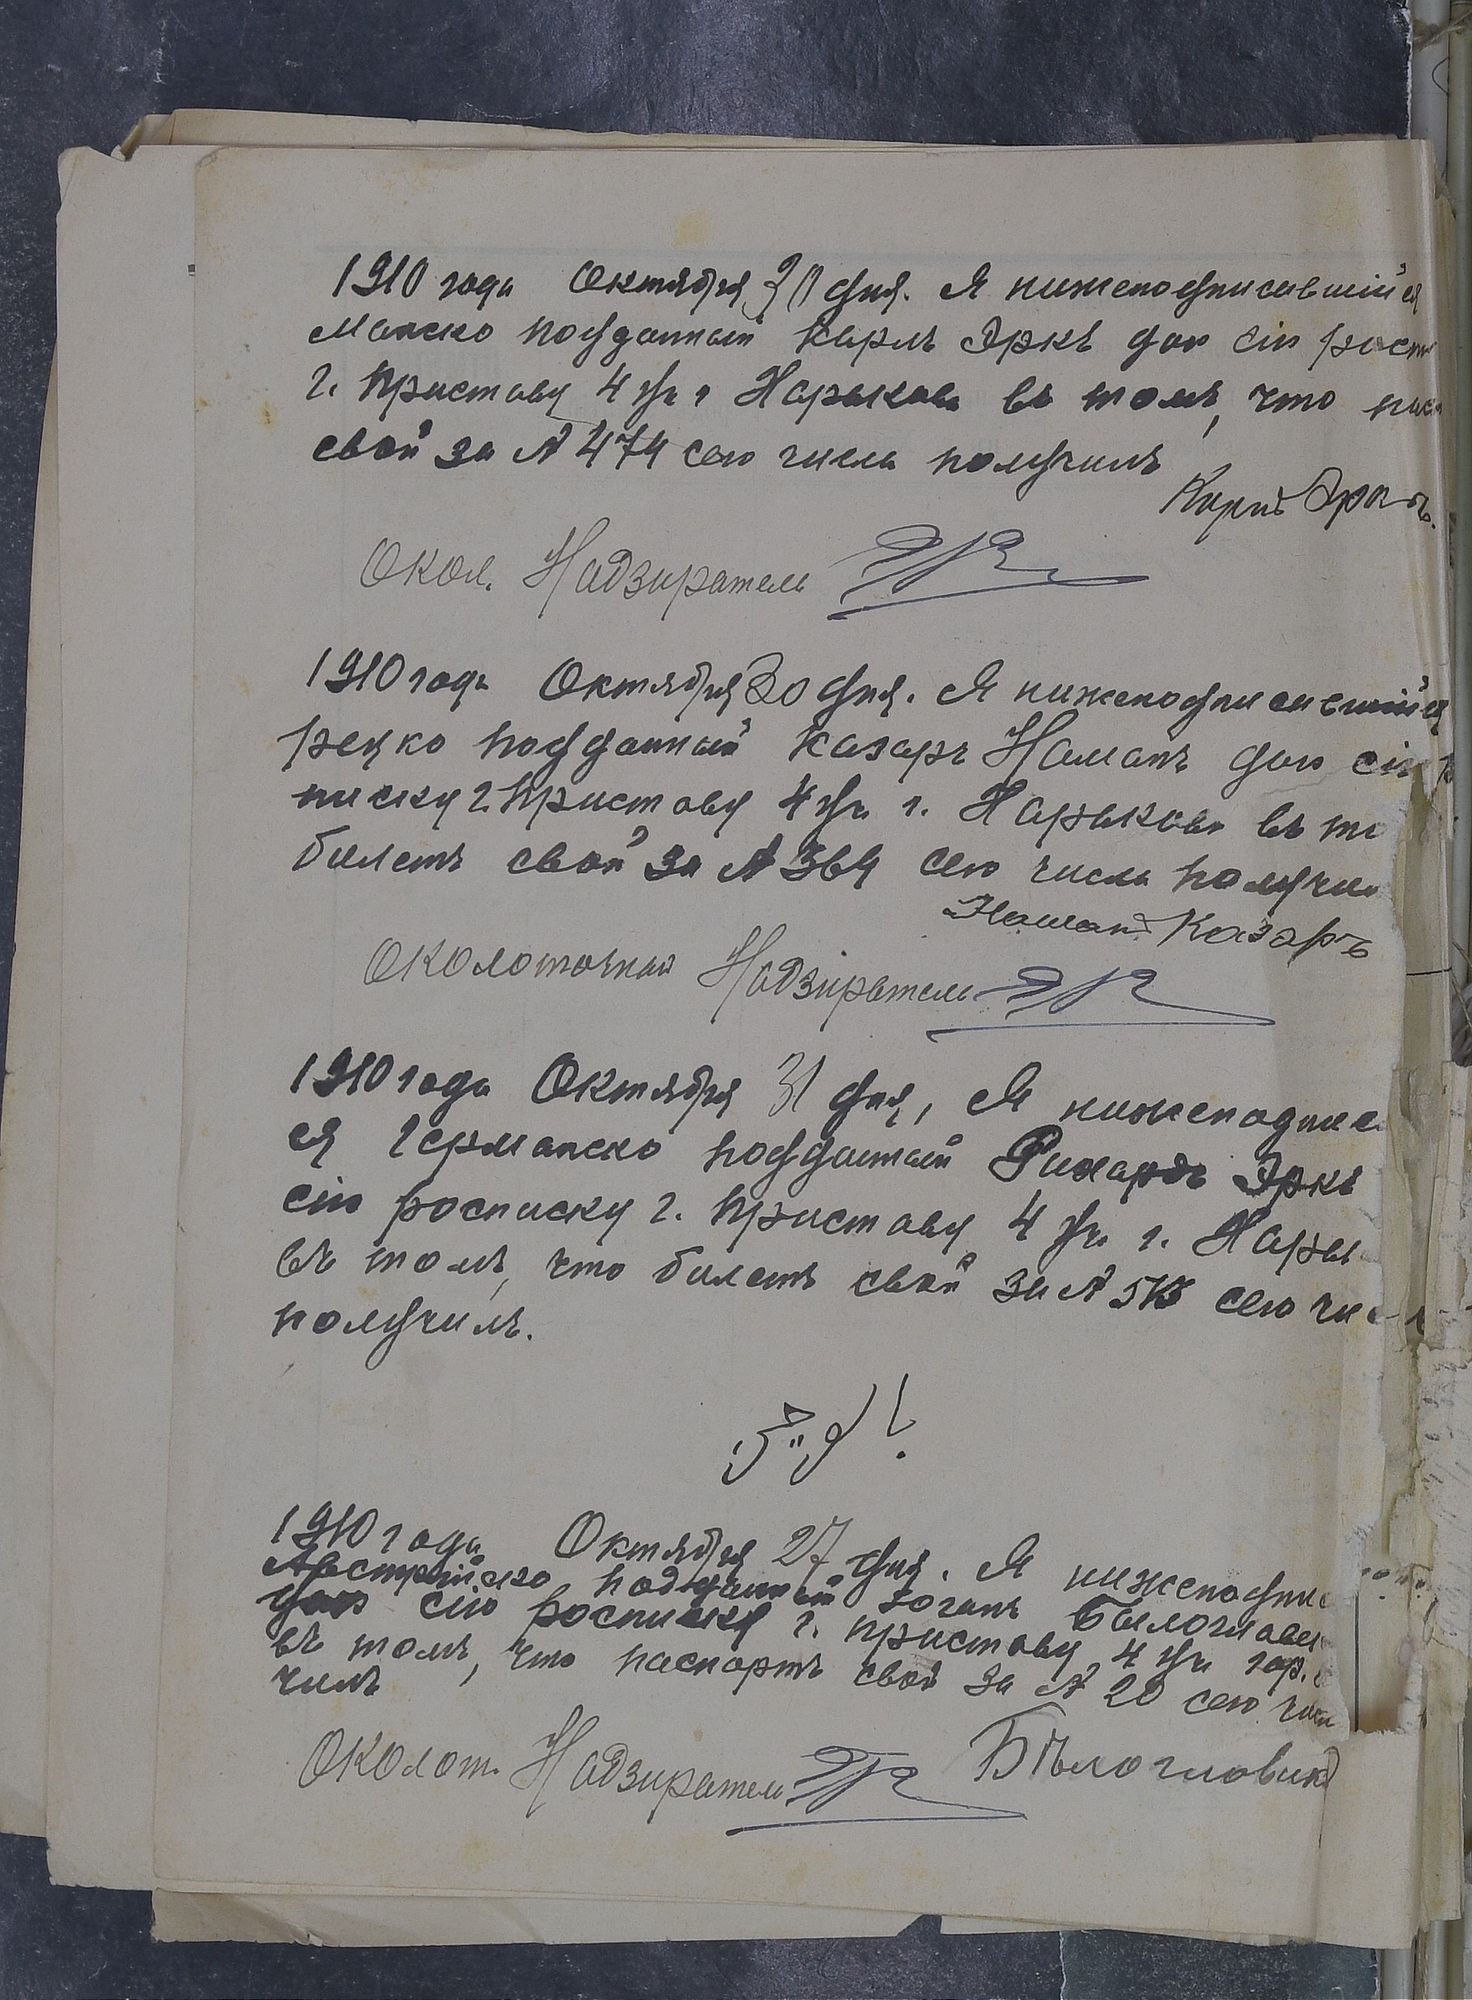 1910 года Октября 30 дня. Я нижеподписавшийся
манско подданный Карлъ Эркъ даю сію росп
г. Приставу 4 уч. г. Харькова въ томъ, что пас
свой за № 474 сего числа получилъ
Карлъ Эркъ.
Окол. Надзиратель
1910 года Октября 30 дня. Я нижеподписавшийся
рецко подданный Казаръ Наманъ даю сію р
писку г. Приставу 4 уч. г. Харькова въ то
билетъ свой за № 364 сего числа получи
Наманъ Казаръ
Околоточный Надзиратель
1910 года Октября 31 дня, Я нижеподписа
ся Германско подданный Рихардъ Эркъ
сію росписку г. Приставу 4 уч. г. Харьк
въ томъ, что билетъ свой за № 513 сего чис
получилъ.
1910 года Октября 27 дня. Я нижеподпис
Австрійско подданный Іоганъ Былоглавек
даю сію росписку г. приставу 4 уч. гор.
въ томъ, что паспортъ свой за № 20 сего числ
чилъ
Околот. Надзиратель Бѣлогловик